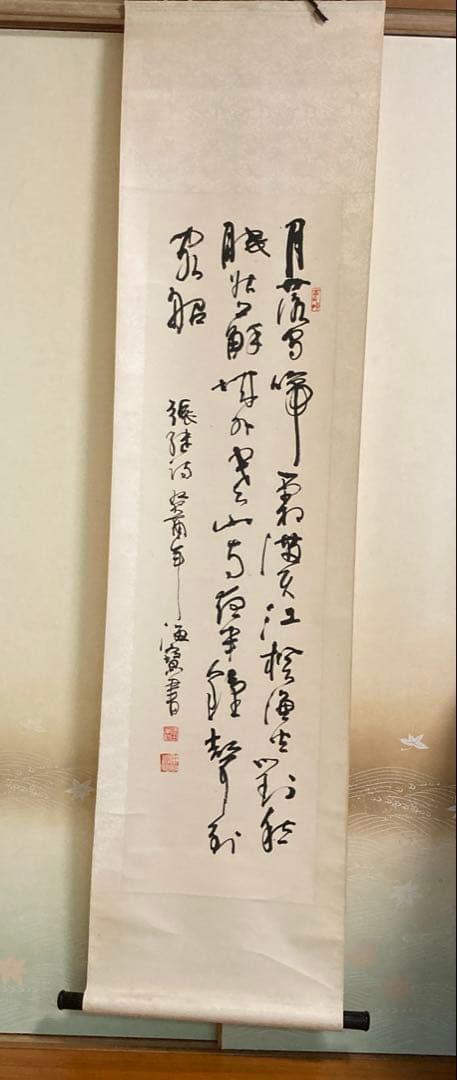 月落烏啼霜滿天江楓漁火對愁
眠姑蘇城外寒山寺夜半鐘聲到
客船
張継詩 癸酉年 海寶書